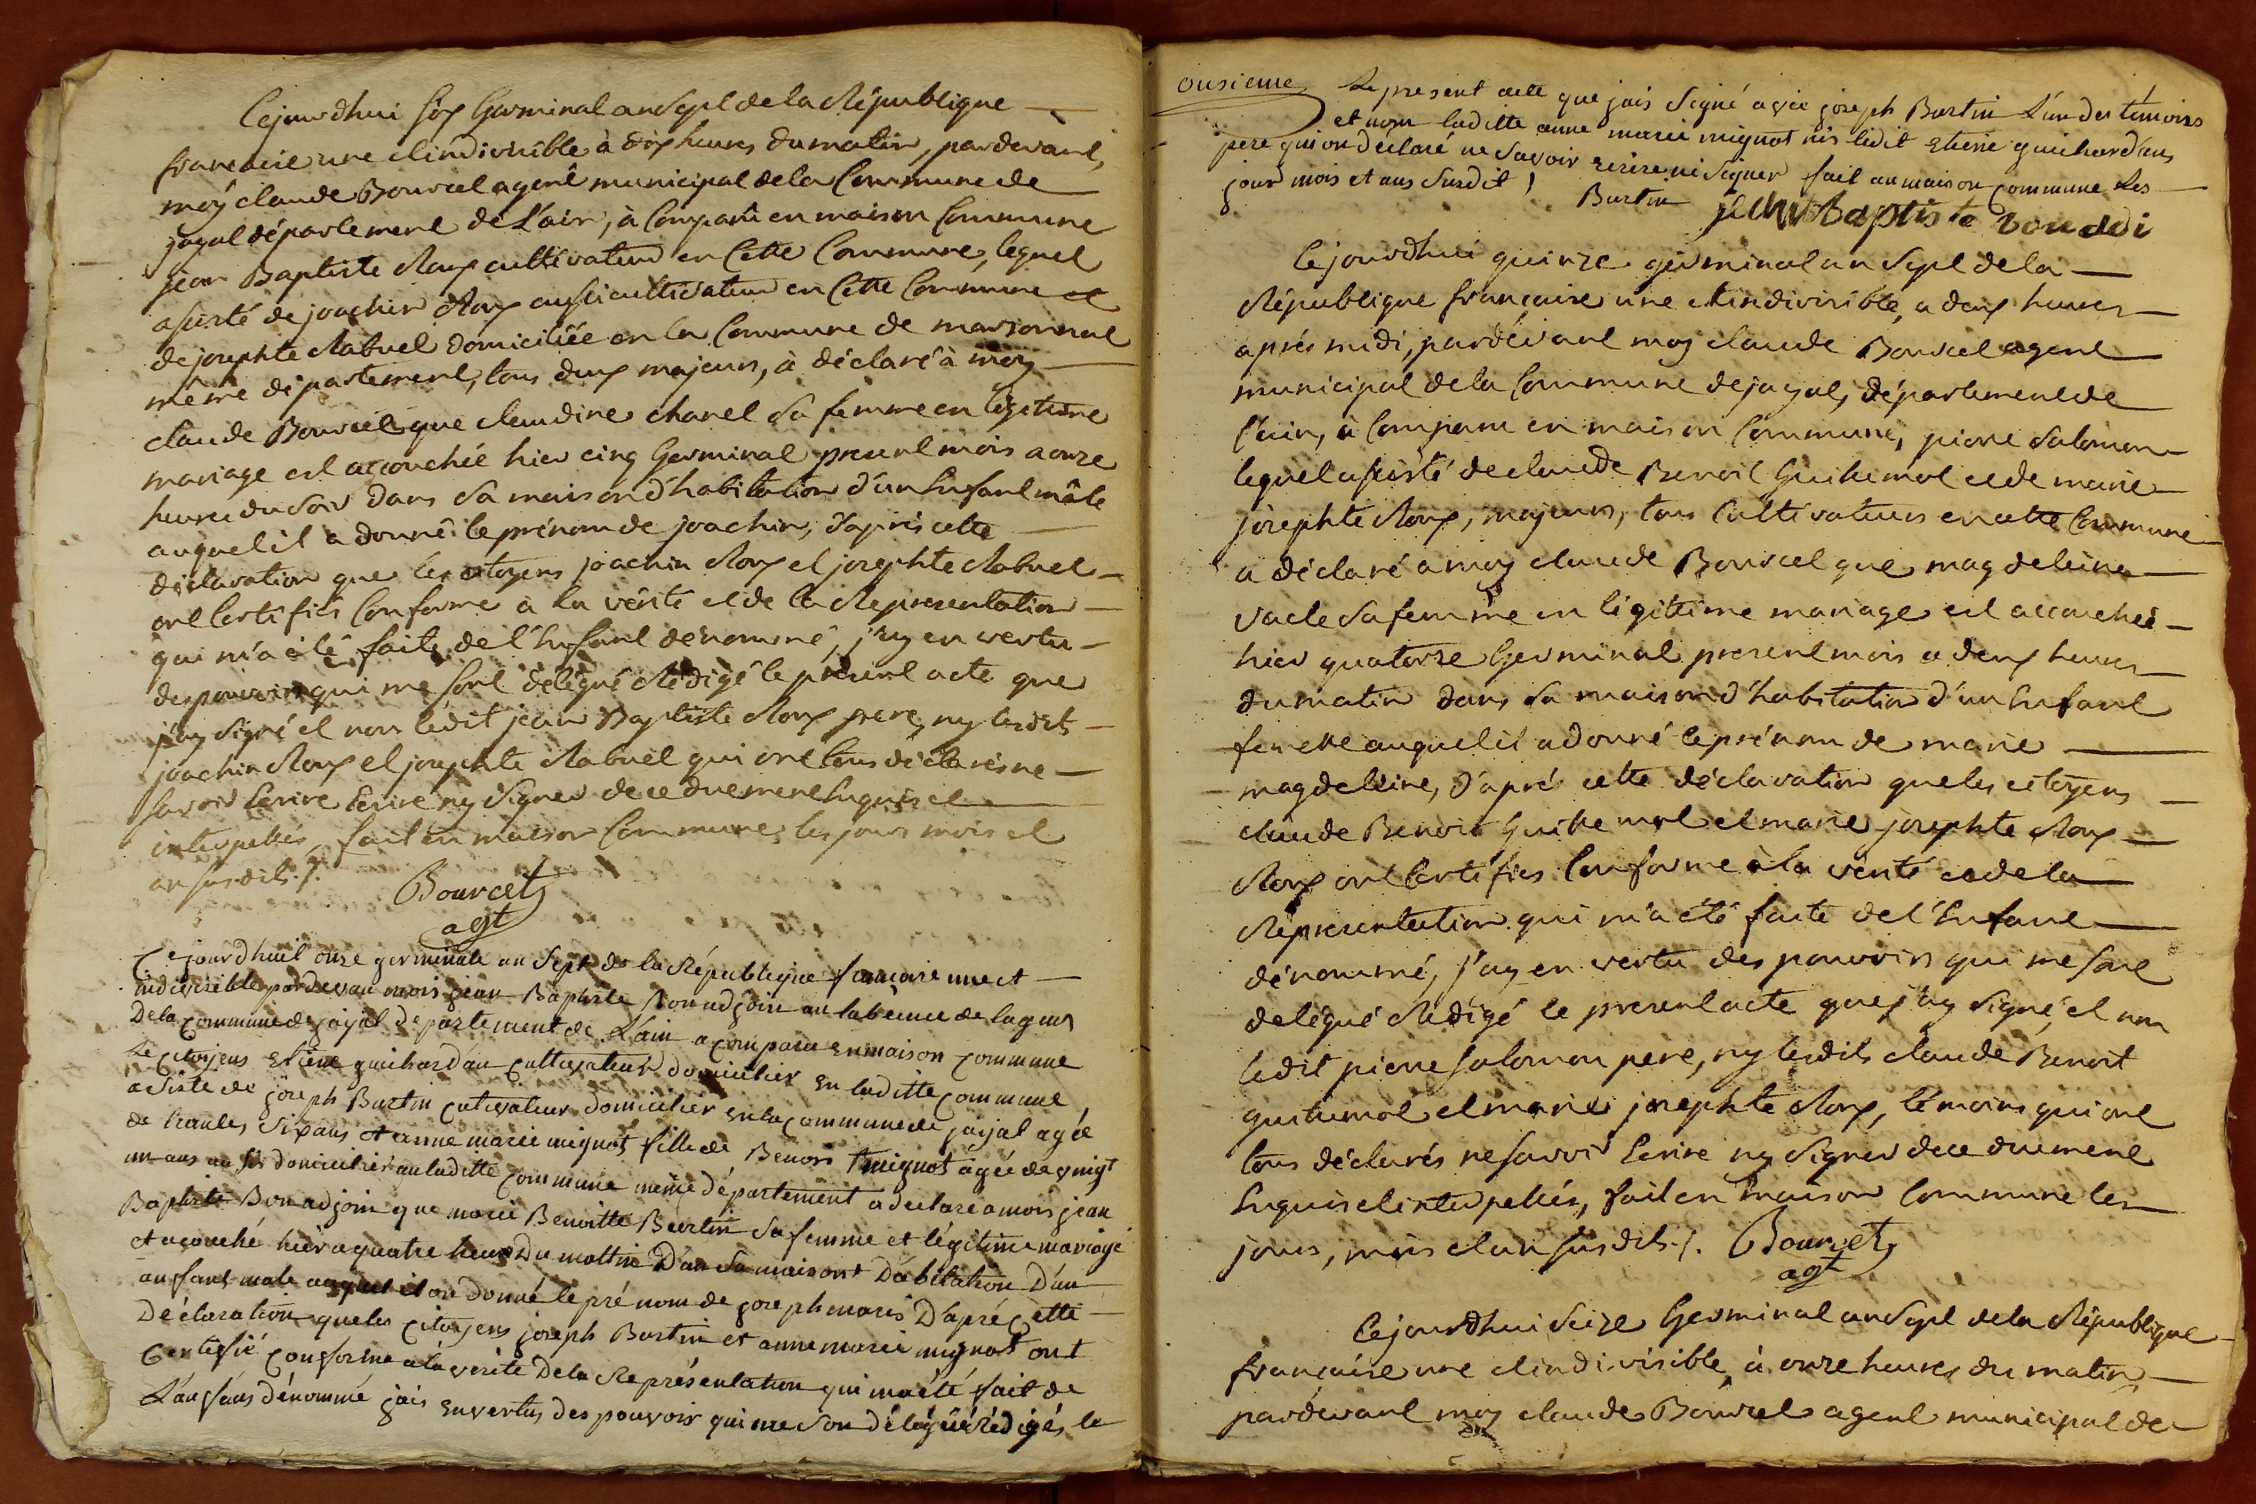 Cejourdhui six Germinal an Sept de la République
francaise une et indivisible à dix heures du matin, pardevant,
moy claude Bourcel agent municipal de la Commune de
jayal département de L'ain, à Comparu en maison Commune
jean Baptiste Roux cultivateur en Cette Commune, lequel
assisté de joachin Roux aussi cultivateur en Cette Commune et
de josephte Rabuel domiciliée en la Commune de marsonnal
même département, tous deux majeurs, à déclaré à moy
claude Bourcel que claudine chanel sa femme en légitime
mariage est accouchée hier cinq Germinal present mois a onze
heures du soir dans sa maison d'habitation d'un Enfant mâle
auquel il a donné le prénom de joachin, d'après cette
déclaration que les citoyens joachin Roux et josephte Rabuel
ont Certifiés Conforme à la vérité et de la Representation
qui m'a été faite de l'Enfant dénommé, j'ay en vertu
des pouvoirs qui me sont délégué Rédigé le présent acte que
j'ay signé et non ledit jean Baptiste Roux pere, ny lesdits
joachin Roux et josephte Rabuel qui ont tous déclarés ne
savoir Ecrire Ecrire ny signer de ce duement Enquis et
interpellés, fait en maison Commune les jours mois et
an susdits ./.
Bourcet
agt
Cejourdhuil onze germinale an Sept de la République francaise une et
indivisible pardevan mois jean Baptiste Bon adjoin an labsence de lagent
De la commune de jayal département de L'ain a comparu en maison commune
Le citoyens Etiene guichardan cultivateur domicilier en laditte commune
adsisté de joseph Burtin cutivateur domicilier en la commune de jayat agée
de trantes six ans et anne marie mignot fille de Benois mignot agée de vnigt
un ans domicilier an laditte commune meme département a declare a mois jean
Baptiste Bon adjoin que marie Benoitte Burtin sa femme et légitime mariage
et acouché hier a quatre heurs Du mattin D'an sa maisont D'abitation D'un
anfant male auquel il on donné le pré nom de joseph marie D'apré cette
Déclaration que les citoyens joseph Burtin et anne marie mignot ont
Certifié conforme a la vérité De la Représentation qui m'a été fait de
L'anfans dénommé jais en vertus des pouvoir qui me son délégués rédigés le
onsieme
Le present acte que jais signé avec joseph Burtin L'un des témoins
et nom laditte anne marie mignot nis ledit Etiene guichardans
pere qui on déclaré ne savoir ecrire ni signer fait an maison commune Les
jour mois et ans susdit Burtin jean Baptiste bon adi
Cejourdhui quinze germinal an Sept de la
République francaise une et indivisible, a deux heures
après midi, pardévant moy claude Bourcel agent
municipal de la Commune de jayal, département de
l'ain, à Comparu en maison Commune, pierre Salomon
lequel assisté de claude Benoit Guillemot et de marie
josephte Roux, majeurs, tous Cultivateurs en cette Commune
a déclaré a moy claude Bourcel que magdeleine
vacle sa femme en légittime mariage est accouchée
hier quatorze Germinal present mois a deux heures
du matin dans sa maison d'habitation d'un Enfant
femelle auquel il a donné le prénom de marie
magdeleine, d'apré cette déclaration que les citoyens
claude Benoit Guillemot et marie josephte Roux
Roux ont Certifiés Conforme à la vérité et de la
Représentation qui m'a été faite de l'Enfant
dénommé, j'ay en vertu des pouvoirs qui me sont
delégué Rédigé le present acte que j'ay signé, et non
ledit pierre Salomon pere, ny lesdits claude Benoit
guillemot et marie josephte Roux, témoins qui ont
tous déclarés ne savoir Ecrire ny signer de ce duement
Enquis et interpellés, fait en maison Commune les
jours, mois et an susdits ./. Bourcet
agt
Cejourdhui Seize Germinal an Sept de la République
francaise une et indivisible, à onze heures du matin,
pardévant moy claude Bourcel agent municipal de